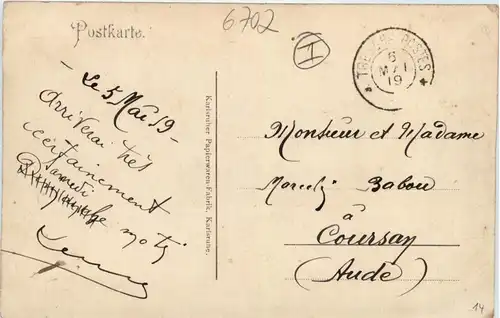 Postkarte.
6702
I
TRESOR ET POSTES
5
MAI
19
Le 5 Mai 19-
Arriverai très
certainement
Samedi
Karlsruher Papierwaren-Fabrik, Karlsruhe.
Monsieur et Madame
Babou
à
Coursan
(Aude)
14